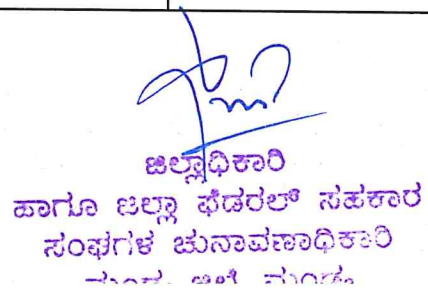 ಜಿಲ್ಲಾಧಿಕಾರಿ
ಹಾಗೂ ಜಿಲ್ಲಾ ಫೆಡರಲ್ ಸಹಕಾರ
ಸಂಘಗಳ ಚುನಾವಣಾಧಿಕಾರಿ